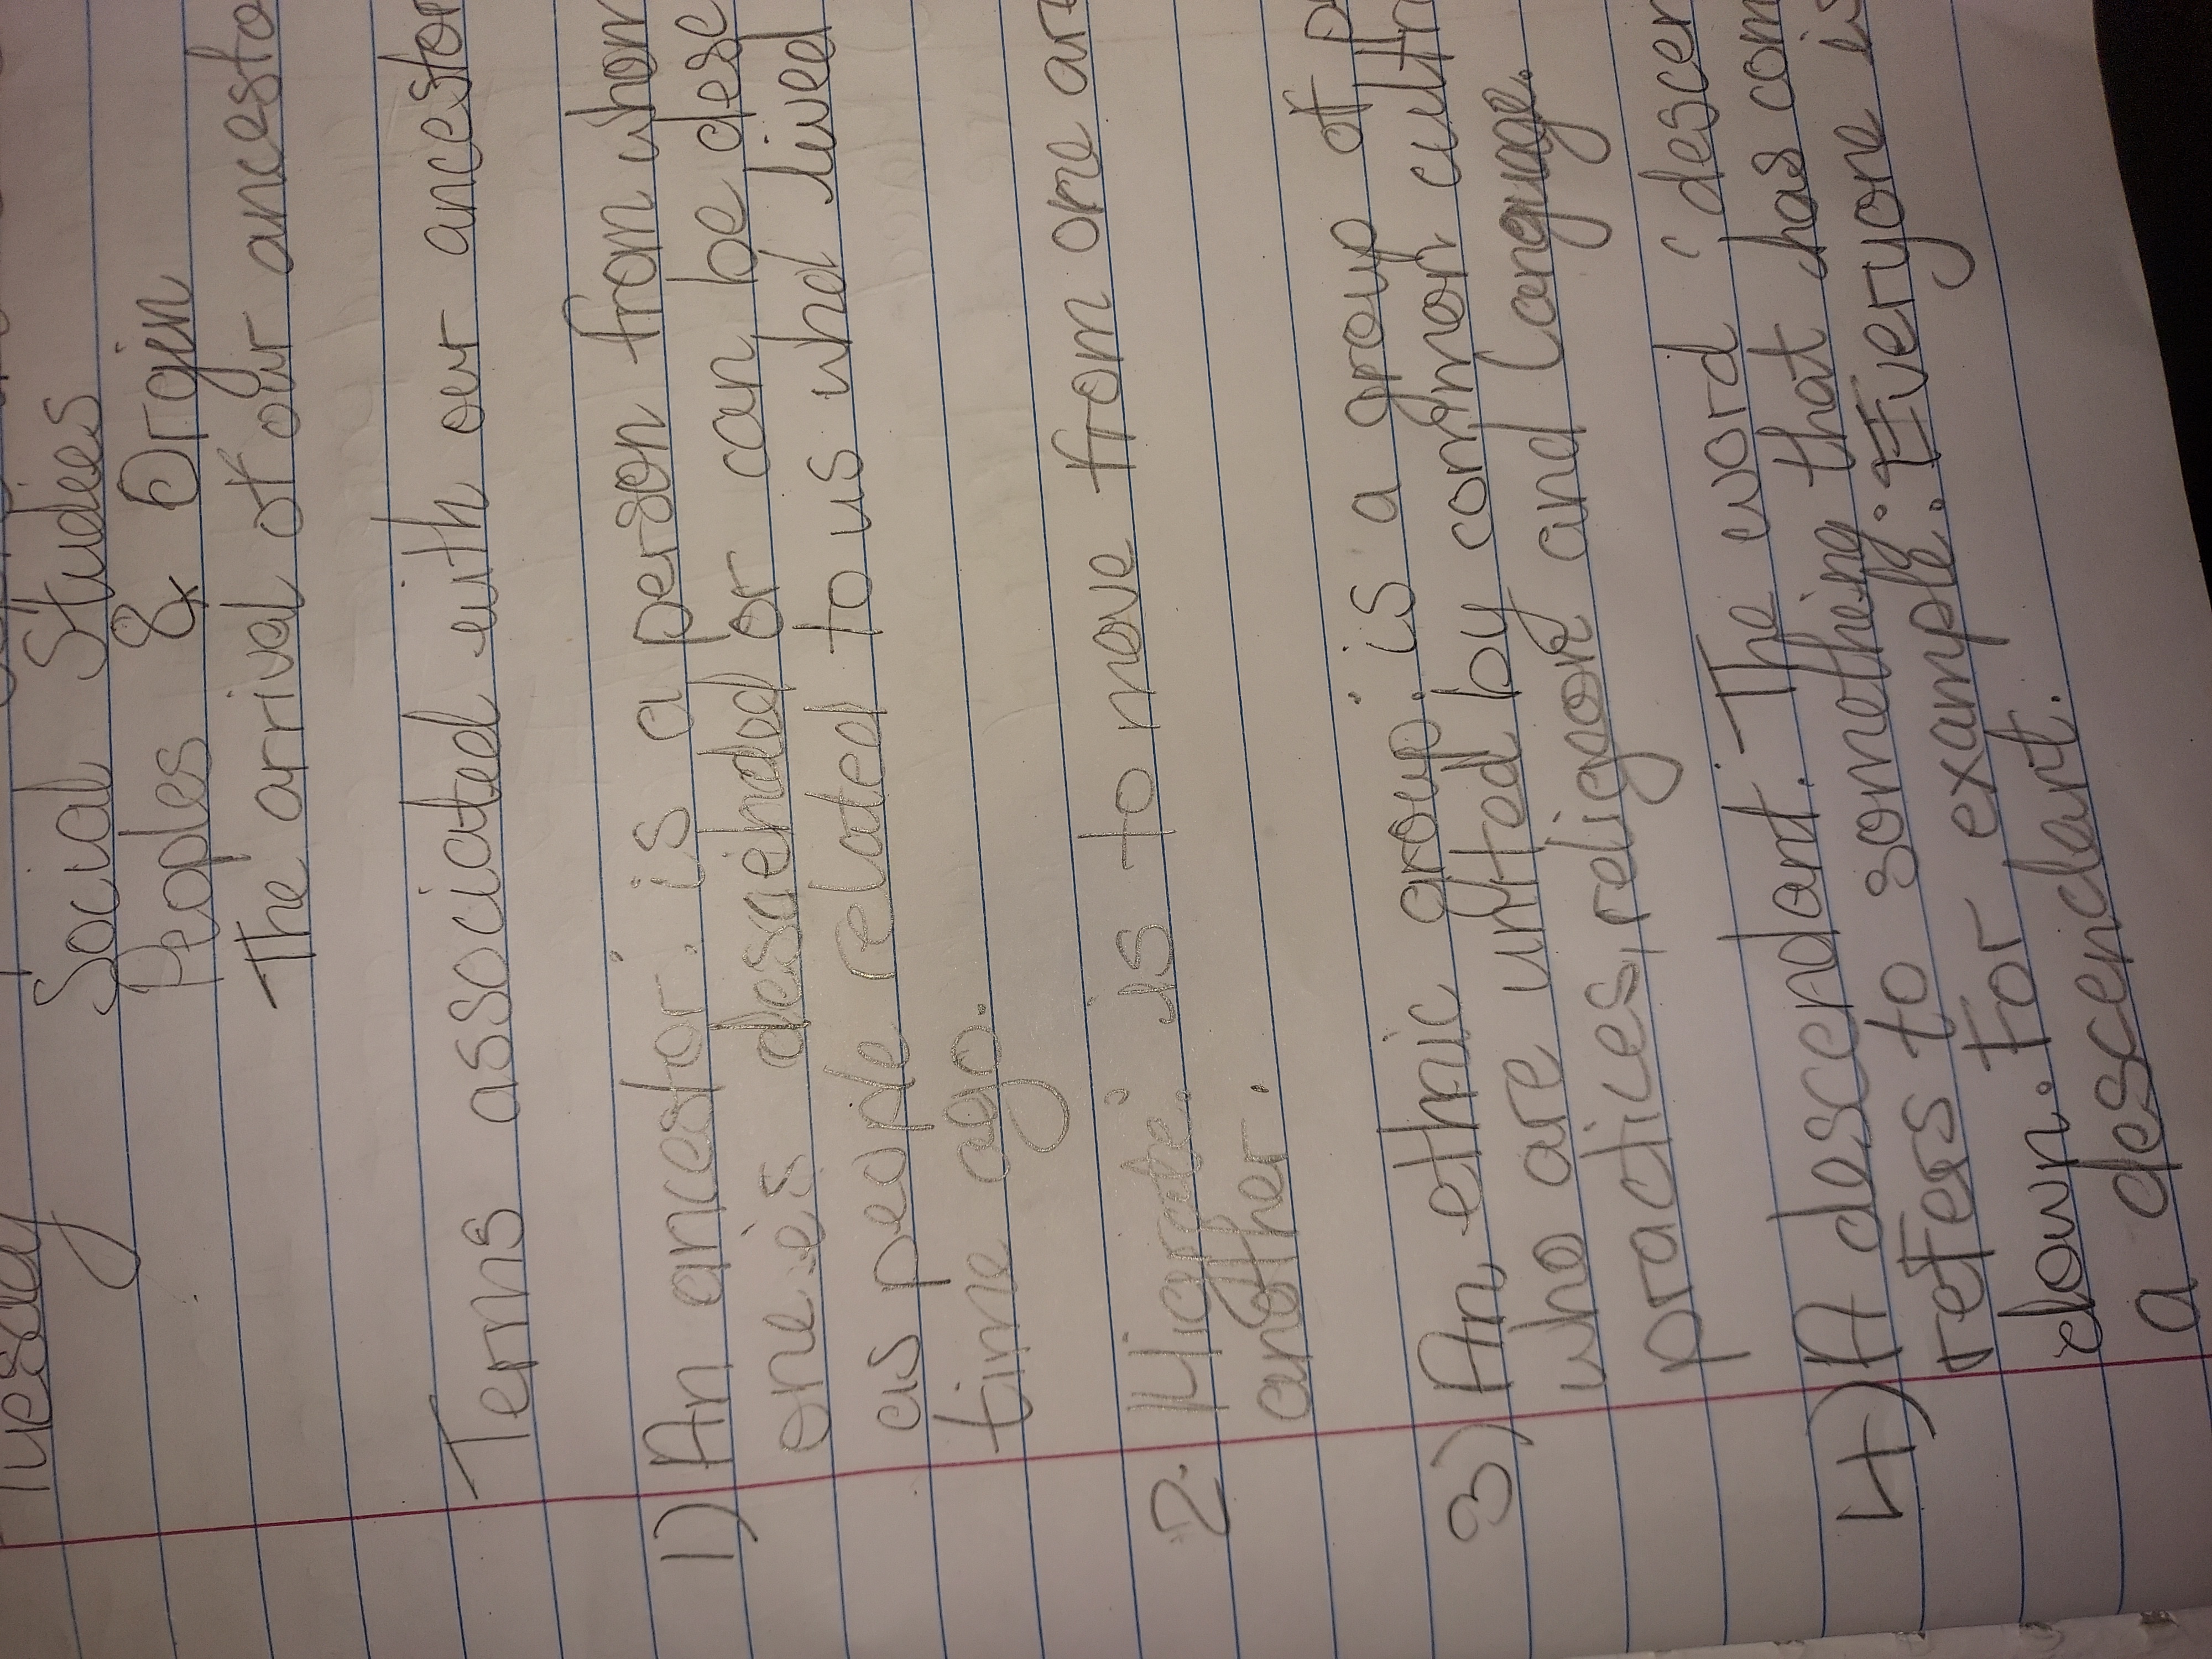 Tuesday
Social Studies
Peoples & Origin
The arrival of our ancesto
Terms associated with our ancestor
1) An ancestor: is a person from whom
one's descended or can be desc
as people related to us who lived
time ago.
2. Migrate: is to move from one are
another.
3) An ethnic group: is a group of p
who are united by common cultu
practices, religiong and language.
4) A descendant: The word 'descen
refers to something that has com
down. For example: Everyone is
a descendant.